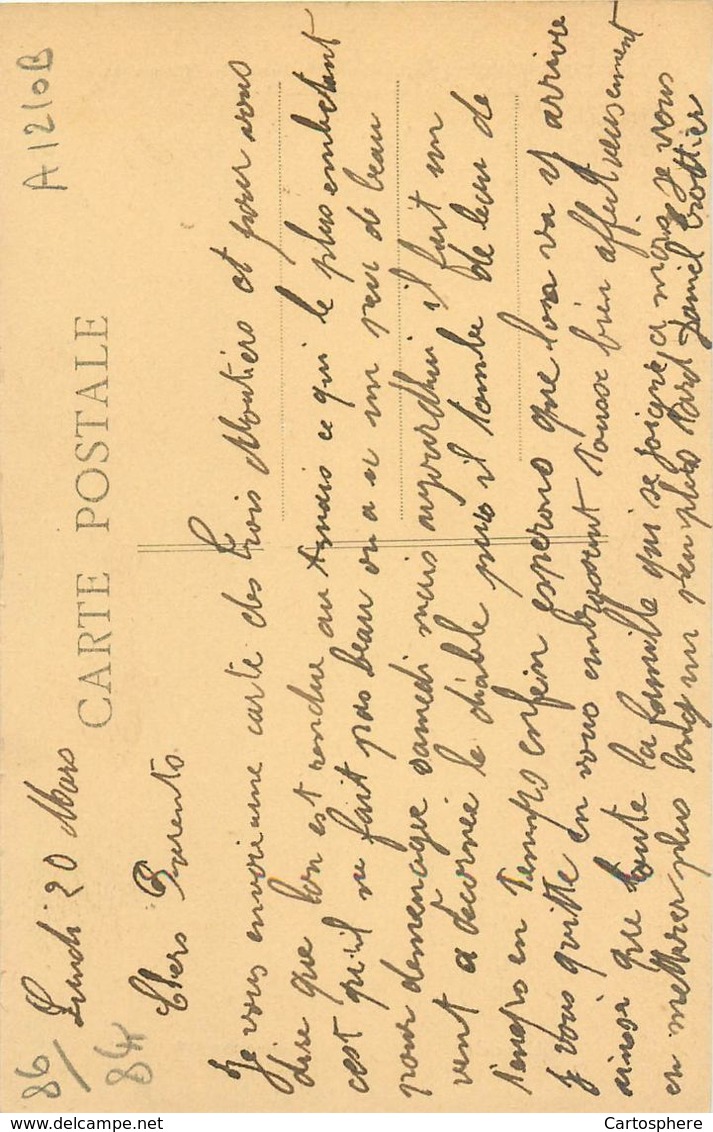 A1210B
86/
84
CARTE POSTALE
Lundi 20 Mars
Chers Parents
Je vous envoie une carte des Trois Moutiers et pour vous
dire que lon est rendue au ce qui le plus embetant
cest qu'il ne fait pas beau on a u un peu de beau
pour demenager samedi mais aujourdhui il fait un
vent a decorner le diable puis il tombe de leau de
temps en temps enfein esperons que lon va y arrivé
Je vous quitte en vous embrassant tousse bien affectueusement
ainsie que toute la famille qui se joigne a moi je vous
en metterer plus long un peu plus tard Daniel
Cartosphere